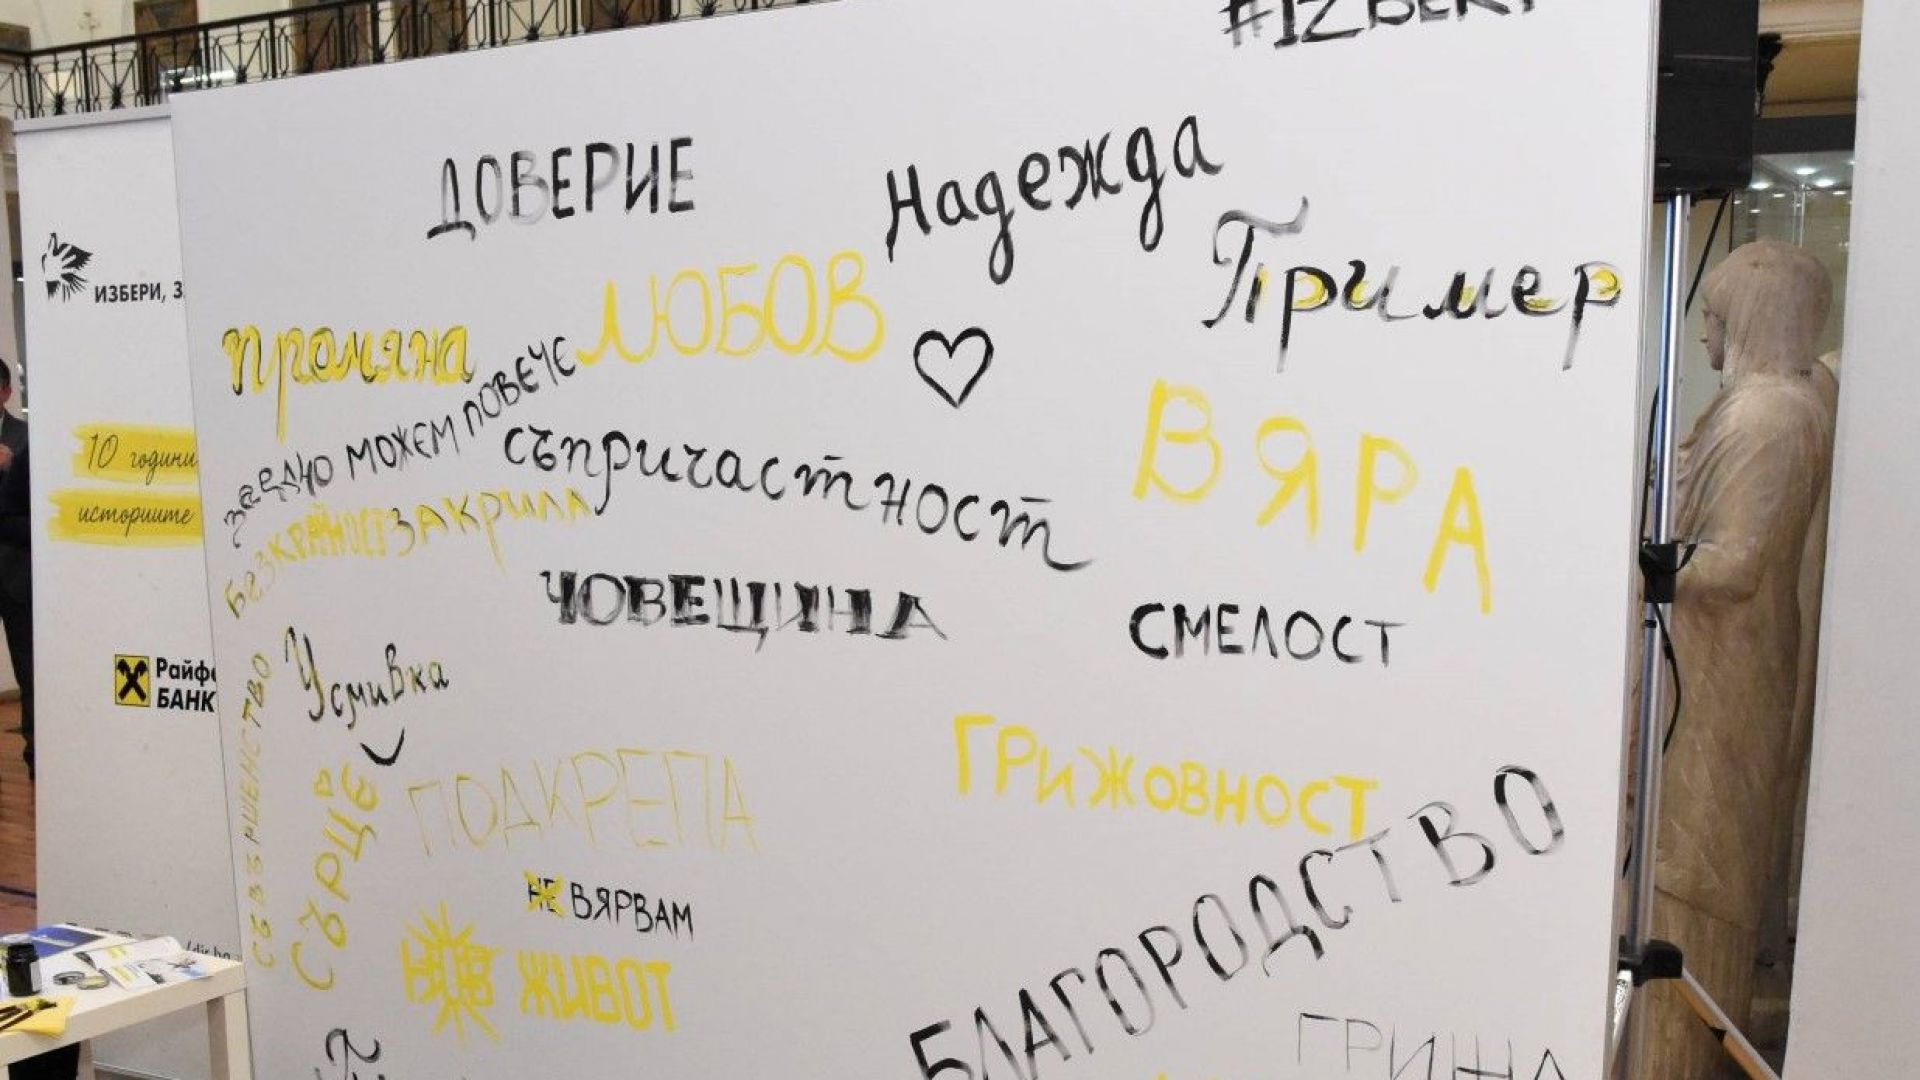 #IZBERI
ДОВЕРИЕ
Надежда
Пример
ЛЮБОВ
промяна
заедно можем повече
съпричастност
ВЯРА
БЕЗКРАЙНОСТ
ЗАКРИЛА
ЧОВЕЩИНА
СМЕЛОСТ
Усмивка
СЪВЪРШЕНСТВО
СЪРЦЕ
ПОДКРЕПА
ГРИЖОВНОСТ
НЕ ВЯРВАМ
НОВ ЖИВОТ
БЛАГОРОДСТВО
ГРИЖА
ИЗБЕРИ, З
10 години
историите
Райфе
БАНК